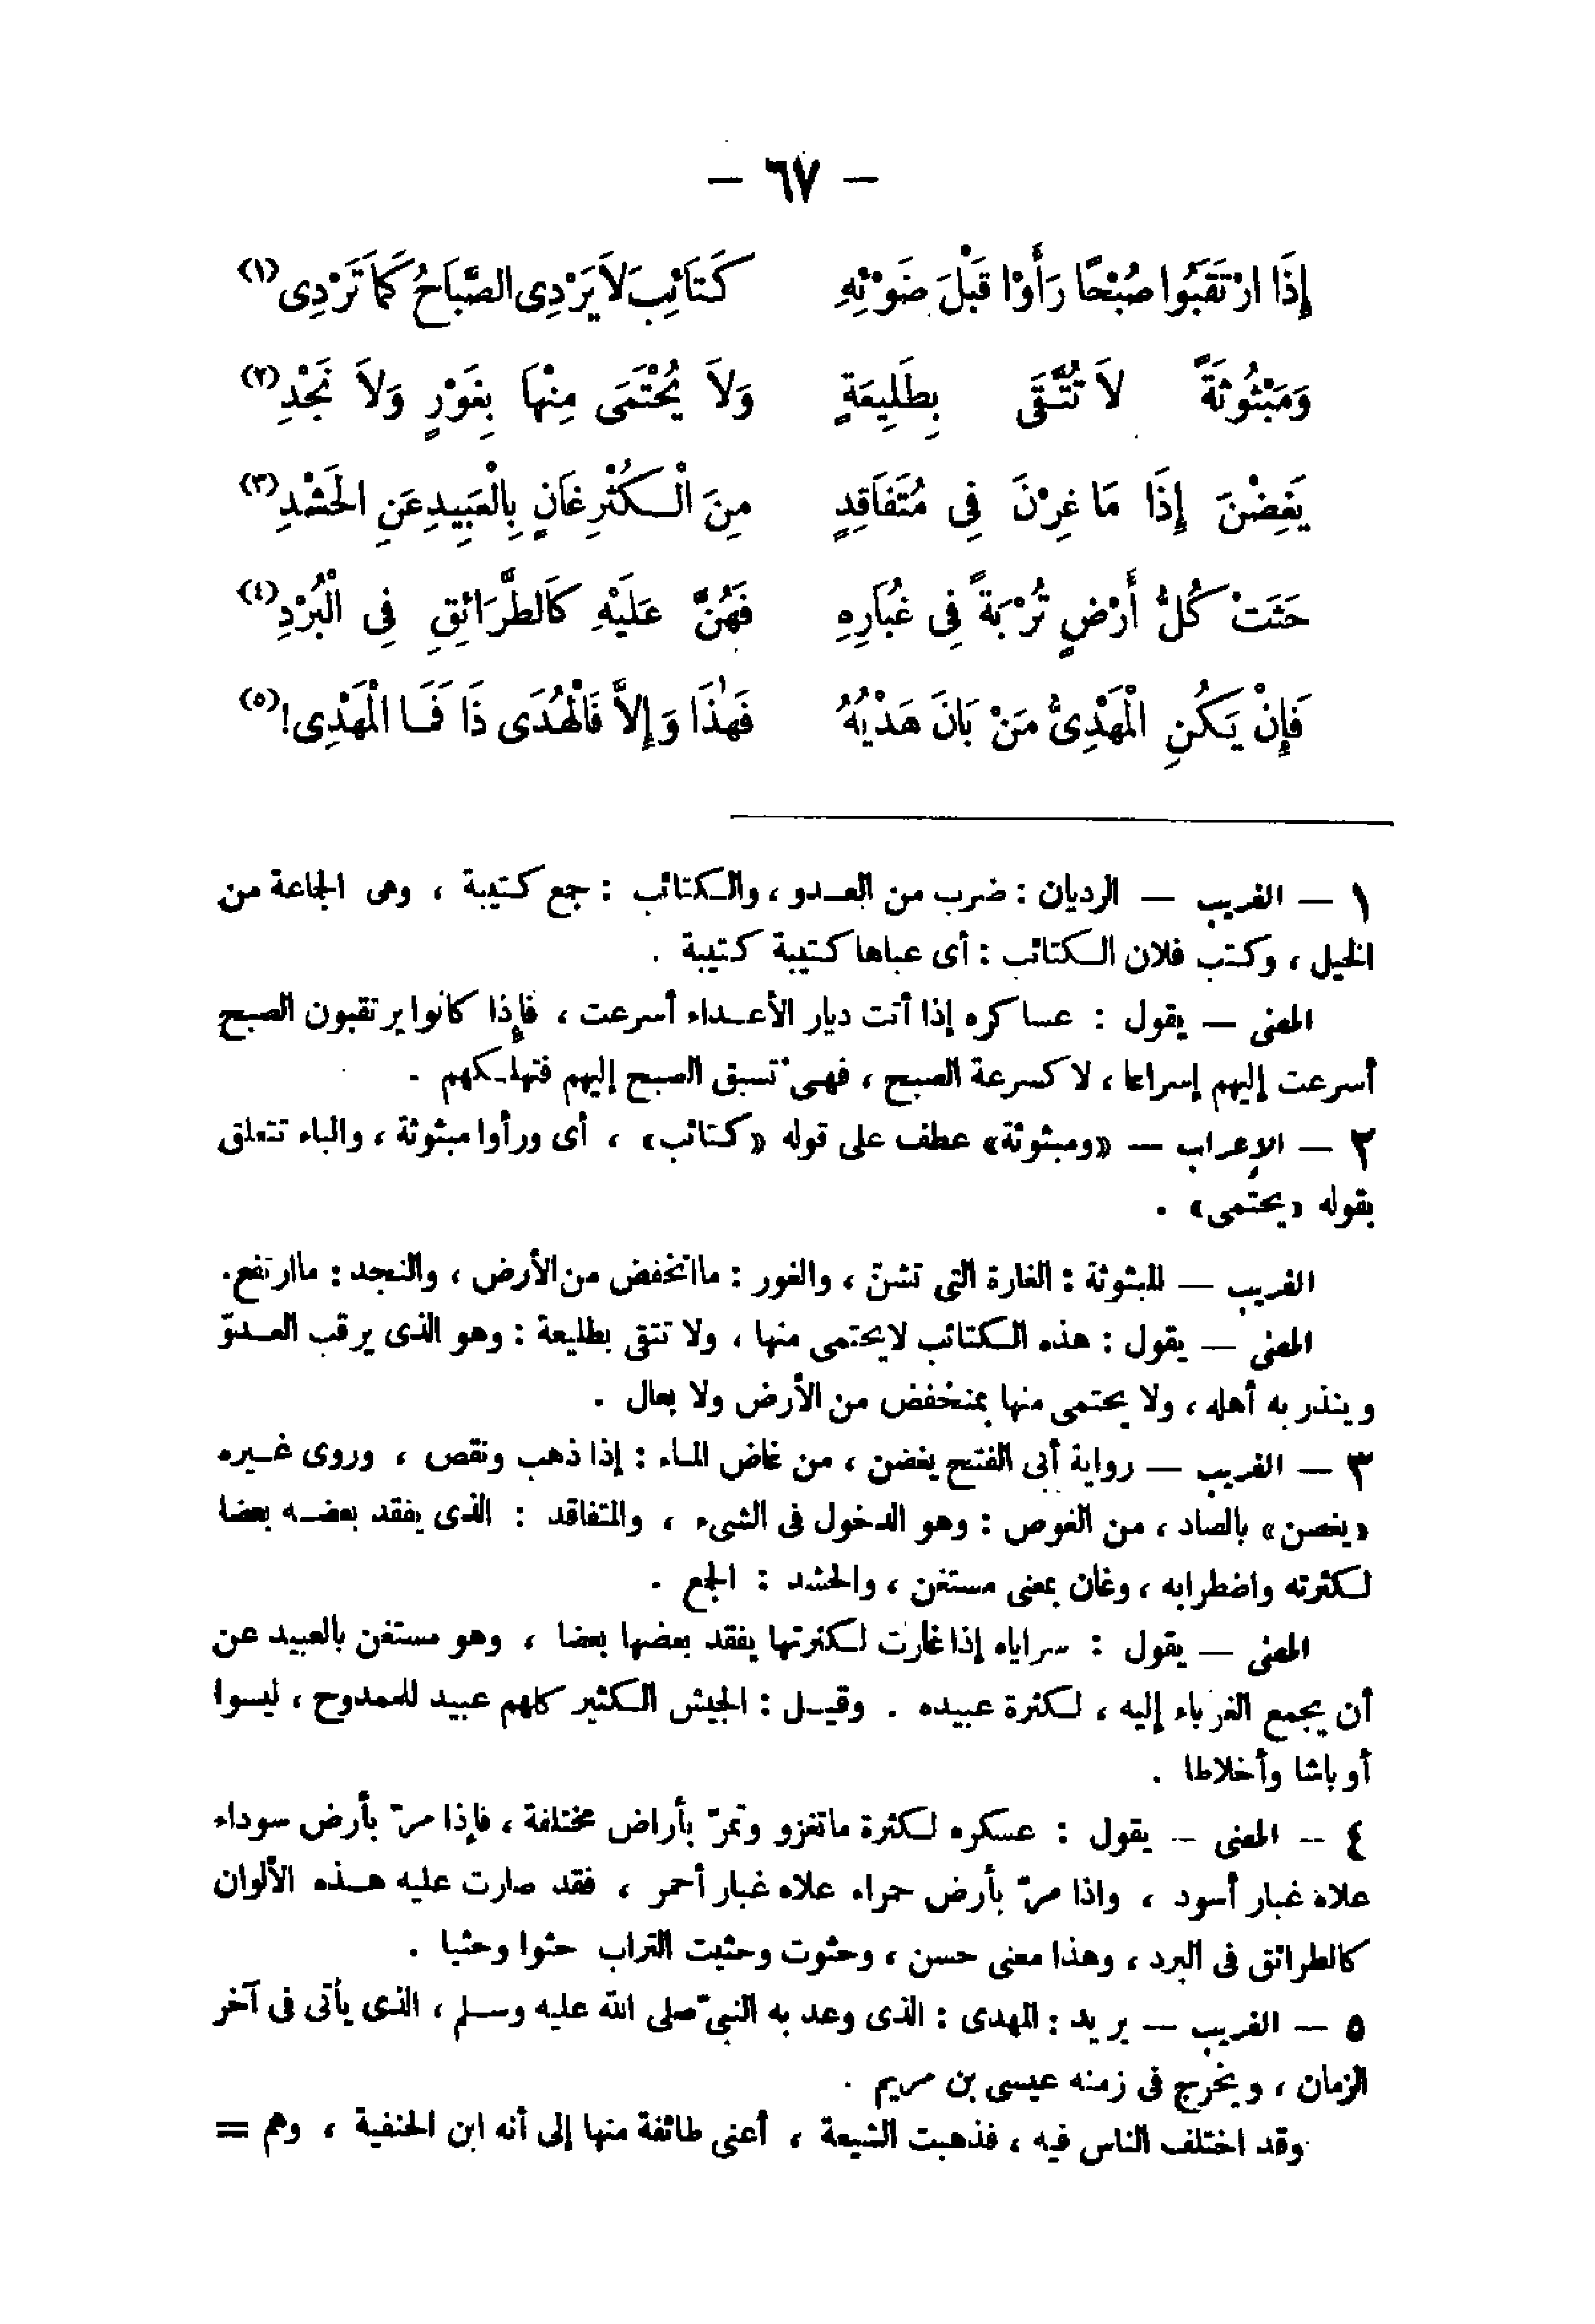 — ٦٧ —
إِذَا ارْتَقَبُوا صُبْحًا رَأَوْا قَبْلَ ضَوْئِهِ كَتَائِبَ لاَ يَرْدِى الصَّبَاحُ كَمَا تَرْدِى (١)
وَمَبْثُوثَةً لاَ تُتَّقَى بِطَلِيعَةٍ وَلاَ يُحْتَمَى مِنْهَا بِغَوْرٍ وَلاَ نَجْدِ (٢)
يَغِضْنَ إِذَا مَا غِرْنَ فِى مُتَفَاقِدٍ مِنَ الْكُثْرِ غَانٍ بِالْعَبِيدِ عَنِ الحَشْدِ (٣)
حَثَتْ كُلُّ أَرْضٍ تُرْبَةً فِى غُبَارِهِ فَهُنَّ عَلَيْهِ كَالطَّرَائِقِ فِى الْبُرْدِ (٤)
فَإِنْ يَكُنِ الْمَهْدِىُّ مَنْ بَانَ هَدْيُهُ فَهٰذَا وَإِلاَّ فَالْهُدَى ذَا فَمَا الْمَهْدِى! (٥)
١ — الغريب — الرديان : ضرب من العدو ، والكتائب : جمع كتيبة ، وهى الجماعة من
الخيل ، وكتب فلان الكتائب : أى عباها كتيبة كتيبة .
المعنى — يقول : عساكره إذا أتت ديار الأعداء أسرعت ، فإذا كانوا يرتقبون الصبح
أسرعت إليهم إسراعا ، لا كسرعة الصبح ، فهى تسبق الصبح إليهم فتهلكهم .
٢ — الإعراب — «ومبثوثة» عطف على قوله «كتائب» ، أى ورأوا مبثوثة ، والباء تتعلق
بقوله «يحتمى» .
الغريب — المبثوثة : الغارة التى تشنّ ، والغور : ماانخفض من الأرض ، والنجد : ماارتفع.
المعنى — يقول : هذه الكتائب لايحتمى منها ، ولا تتقى بطليعة : وهو الذى يرقب العدوّ
وينذر به أهله ، ولا يحتمى منها بمنخفض من الأرض ولا بعال .
٣ — الغريب — رواية أبى الفتح يغضن ، من غاض الماء : إذا ذهب ونقص ، وروى غيره
«يغصن» بالصاد ، من الغوص : وهو الدخول فى الشىء ، والمتفاقد : الذى يفقد بعضه بعضا
لكثرته واضطرابه ، وغان بمعنى مستغن ، والحشد : الجمع .
المعنى — يقول : سراياه إذا غارت لكثرتها يفقد بعضها بعضا ، وهو مستغن بالعبيد عن
أن يجمع الغرباء إليه ، لكثرة عبيده . وقيل : الجيش الكثير كلهم عبيد للممدوح ، ليسوا
أوباشا وأخلاطا .
٤ — المعنى — يقول : عسكره لكثرة ماتغزو وتمرّ بأراض مختلفة ، فإذا مرّ بأرض سوداء
علاه غبار أسود ، واذا مرّ بأرض حمراء علاه غبار أحمر ، فقد صارت عليه هذه الألوان
كالطرائق فى البرد ، وهذا معنى حسن ، وحثوت وحثيت التراب حثوا وحثيا .
٥ — الغريب — يريد : المهدى : الذى وعد به النبىّ صلى الله عليه وسلم ، الذى يأتى فى آخر
الزمان ، ويخرج فى زمنه عيسى بن مريم .
وقد اختلف الناس فيه ، فذهبت الشيعة ، أعنى طائفة منها إلى أنه ابن الحنفية ، وهم =